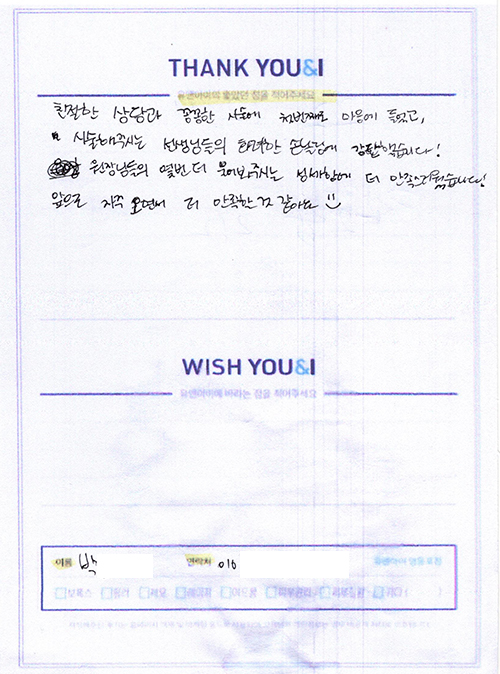 THANK YOU&I
유앤아이의 좋았던 점을 적어주세요
친절한 상담과 꼼꼼한 시술에 첫번째로 마음에 들었고,
시술해주시는 선생님들의 화려한 손놀림에 감탄했습니다!
원장님들의 열번 더 물어봐주시는 섬세함에 더 만족스러웠습니다!
앞으로 자주 오면서 더 만족할 것 같아요
WISH YOU&I
유앤아이에 바라는 점을 적어주세요
이름 박 연락처 010 유앤아이 명동호점
보톡스 필러 제모 레이저 여드름 피부관리 리프팅 기타 ( )